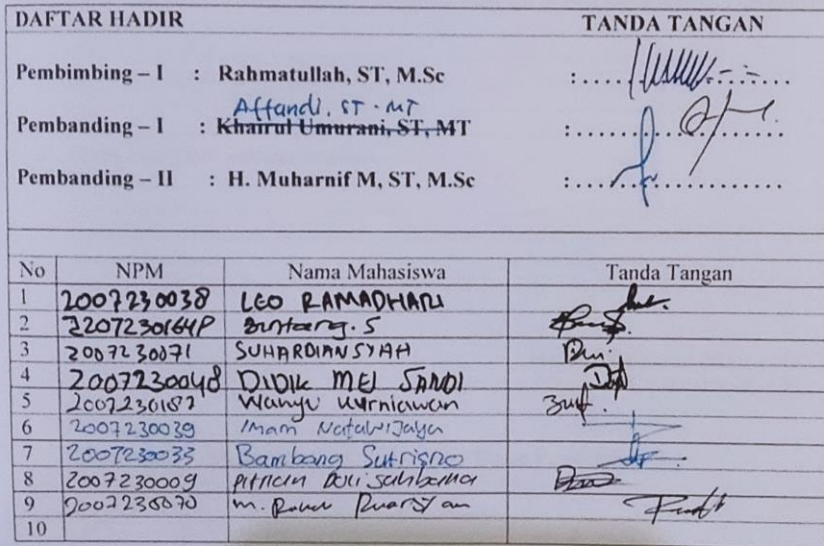 DAFTAR HADIR TANDA TANGAN
Pembimbing – I : Rahmatullah, ST, M.Sc :
Affandi, ST. MT
Pembanding – I : Khairul Umurani, ST, MT :
Pembanding – II : H. Muharnif M, ST, M.Sc :
No NPM Nama Mahasiswa Tanda Tangan
1 2007230038 LEO RAMADHANI
2 2207230164P Bintang. S
3 2007230071 SUHARDIANSYAH
4 2007230048 DIDIK MEI SANDI
5 Wahyu Kurniawan
6 2007230039 Imam Natawijaya
7 2007230033 Bambang Sutrisno
8 2007230009
9 2007230070 M.
10